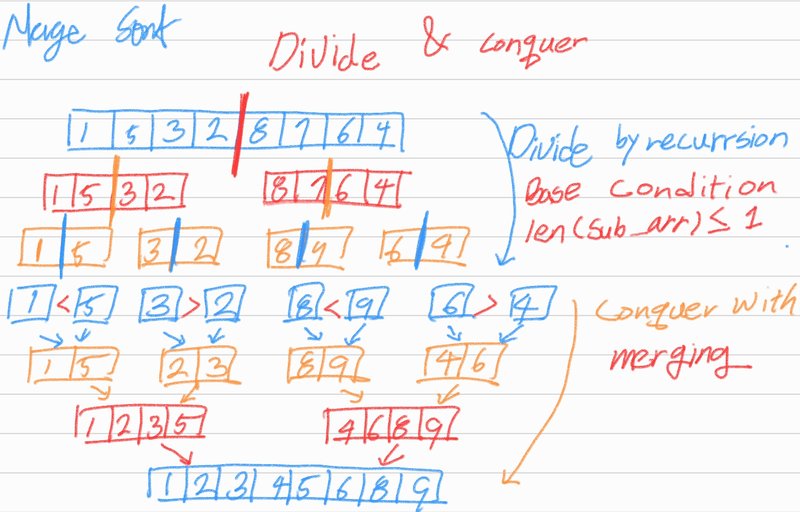 Merge Sort
Divide & conquer
1 5 3 2 8 7 6 4
Divide by recurrsion
1 5 3 2 8 7 6 4
Base condition
len(sub_arr) ≤ 1
1 5 3 2 8 9 6 9
1 < 5 3 > 2 8 < 9 6 > 4
Conquer with
merging
1 5 2 3 8 9 4 6
1 2 3 5 4 6 8 9
1 2 3 4 5 6 8 9